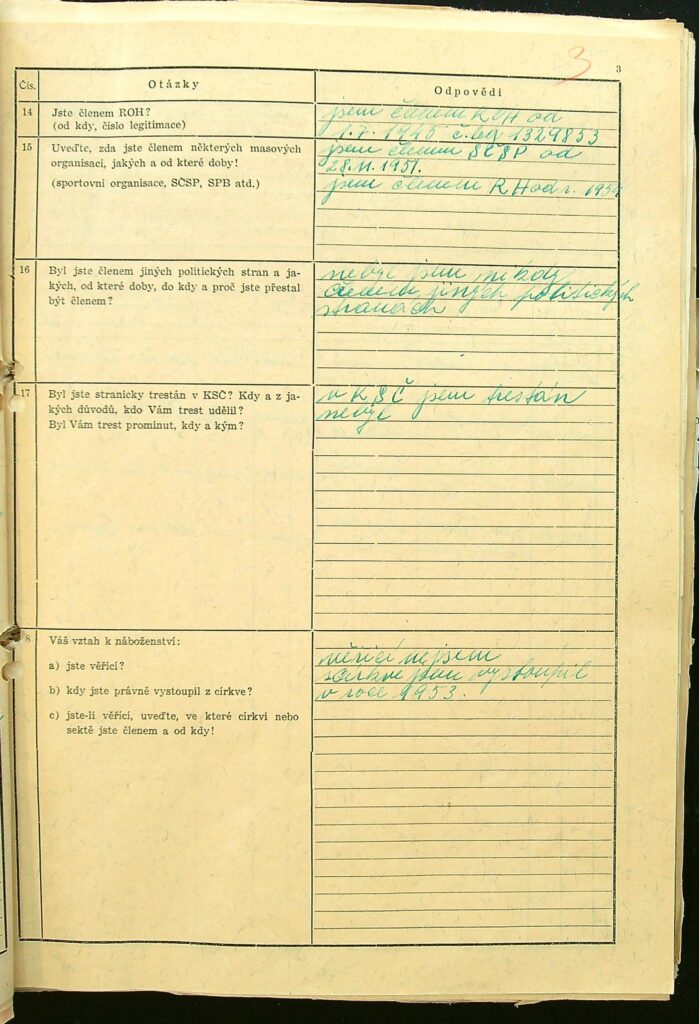 3
3
Čís.
Otázky
Odpovědi
14
Jste členem ROH?
(od kdy, číslo legitimace)
jsem členem ROH od
1.7. 1945 č.leg 1329853
15
Uveďte, zda jste členem některých masových
organisací, jakých a od které doby!
(sportovní organisace, SČSP, SPB atd.)
jsem členem SČSP od
28.11.1951.
jsem členem RH od r. 1954
16
Byl jste členem jiných politických stran a ja-
kých, od které doby, do kdy a proč jste přestal
být členem?
nebyl jsem nikdy
členem jiných politických
stranách
17
Byl jste stranicky trestán v KSČ? Kdy a z ja-
kých důvodů, kdo Vám trest udělil?
Byl Vám trest prominut, kdy a kým?
v KSČ jsem trestán
nebyl
8
Váš vztah k náboženství:
a) jste věřící?
b) kdy jste právně vystoupil z církve?
c) jste-li věřící, uveďte, ve které církvi nebo
sektě jste členem a od kdy!
věřící nejsem
z církve jsem vystoupil
v roce 1953.